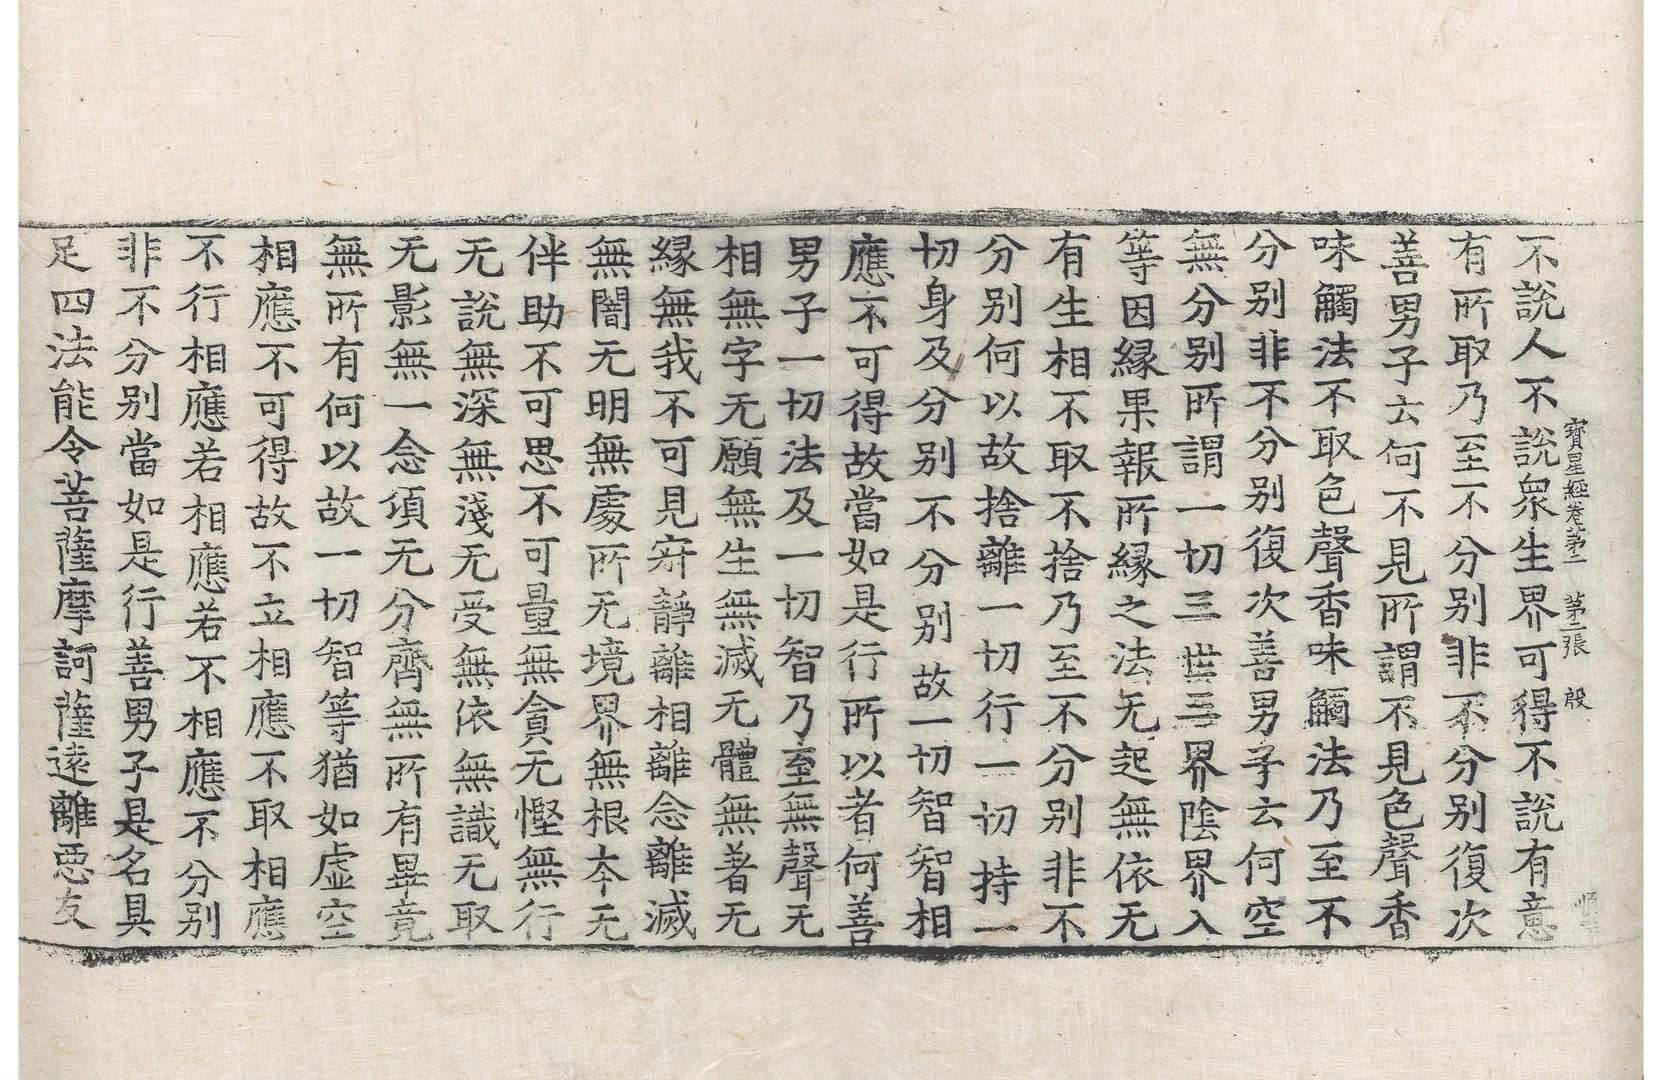 不說人不說衆生界可得不說有意
有所取乃至不分別非不分別復次
善男子云何不見所謂不見色聲香
味觸法不取色聲香味觸法乃至不
分別非不分別復次善男子云何空
無分別所謂一切三世三界陰界入
等因緣果報所緣之法无起無依无
有生相不取不捨乃至不分別非不
分別何以故捨離一切行一切持一
切身及分別不分別故一切智智相
應不可得故當如是行所以者何善
男子一切法及一切智乃至無聲无
相無字无願無生無滅无體無著无
緣無我不可見寂靜離相離念離滅
無闇无明無處所无境界無根本无
伴助不可思不可量無貪无慳無行
无說無深無淺无受無依無識无取
无影無一念頃无分齊無所有畢竟
無所有何以故一切智等猶如虛空
相應不可得故不立相應不取相應
不行相應若相應若不相應不分別
非不分別當如是行善男子是名具
足四法能令菩薩摩訶薩遠離惡友
寶星經卷第二 第二張 殷